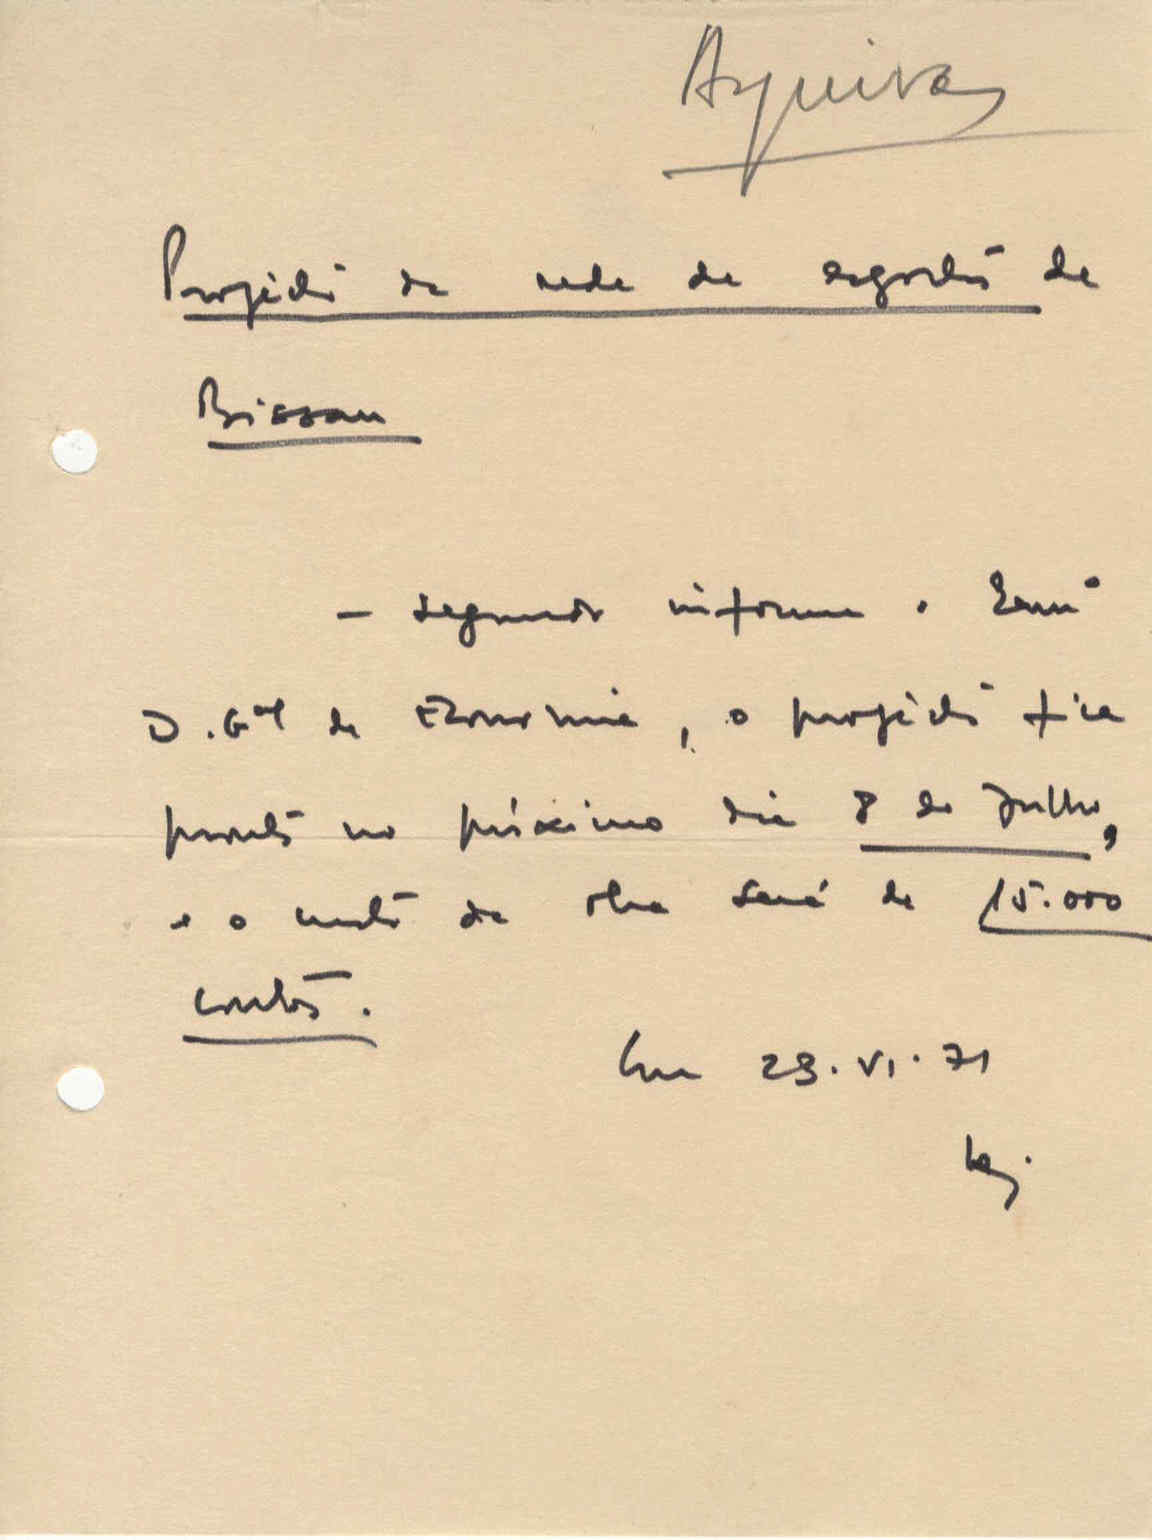 Arquivo
Projecto da rede de esgotos de
Bissau
- segundo informa o Exmº
D. Gal de Economia, o projecto fica
pronto no próximo dia 8 de Julho,
e o custo da obra será de 15.000
contos.
Em 23.VI.71